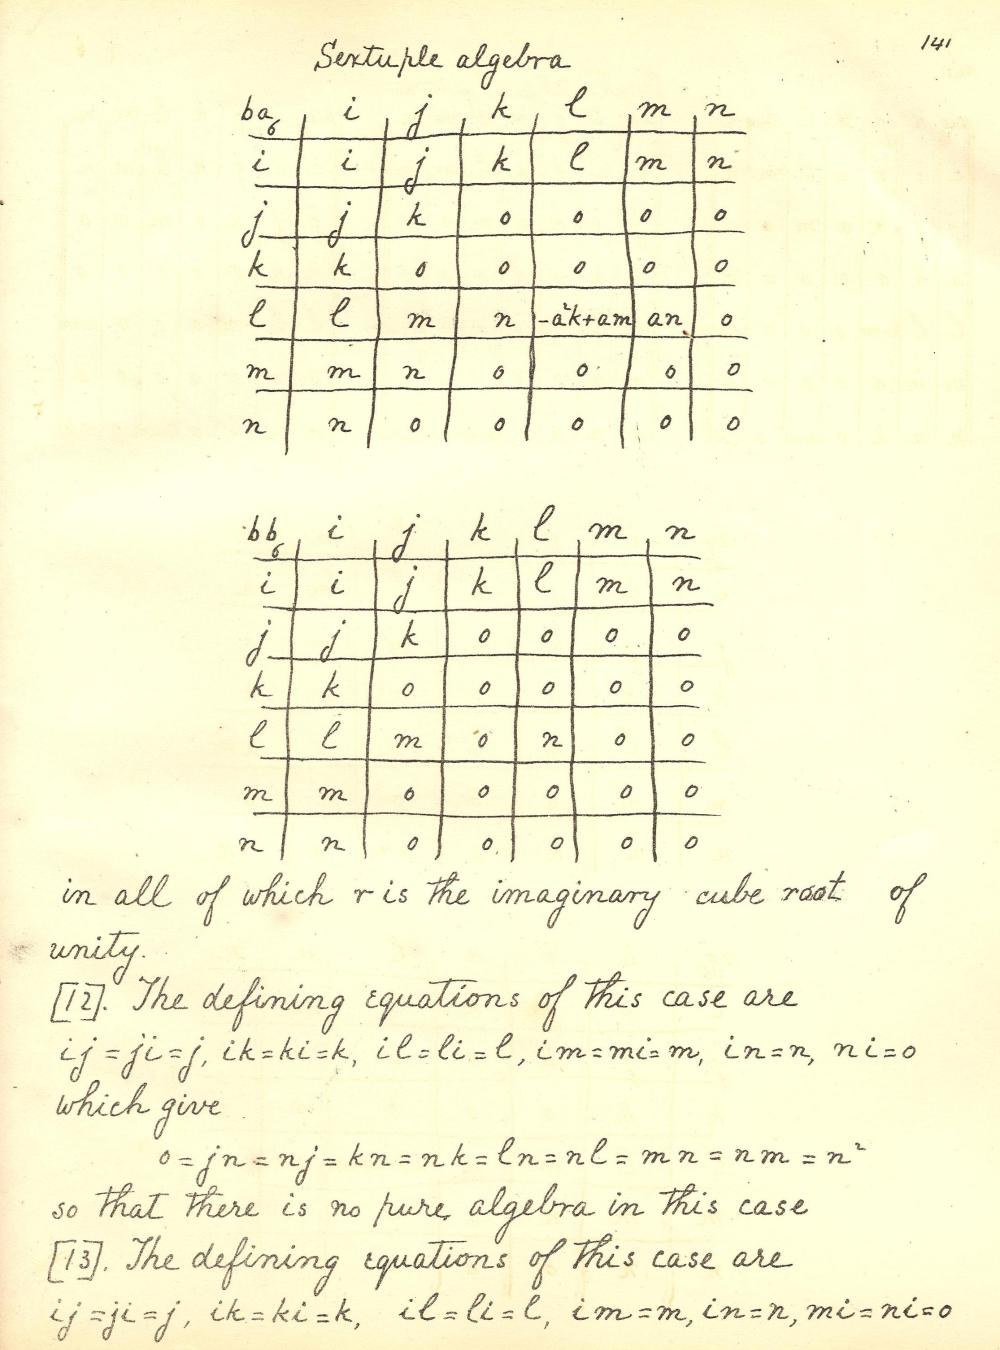 141
Sextuple algebra
ba₆ i j k l m n
i i j k l m n
j j k 0 0 0 0
k k 0 0 0 0 0
l l m n -a²k+am an 0
m m n 0 0 0 0
n n 0 0 0 0 0
bb₆ i j k l m n
i i j k l m n
j j k 0 0 0 0
k k 0 0 0 0 0
l l m 0 n 0 0
m m 0 0 0 0 0
n n 0 0 0 0 0
in all of which r is the imaginary cube root of
unity.
[12]. The defining equations of this case are
ij=ji=j, ik=ki=k, il=li=l, im=mi=m, in=n, ni=0
which give
0=jn=nj=kn=nk=ln=nl=mn=nm=n²
so that there is no pure algebra in this case
[13]. The defining equations of this case are
ij=ji=j, ik=ki=k, il=li=l, im=m, in=n, mi=ni=0